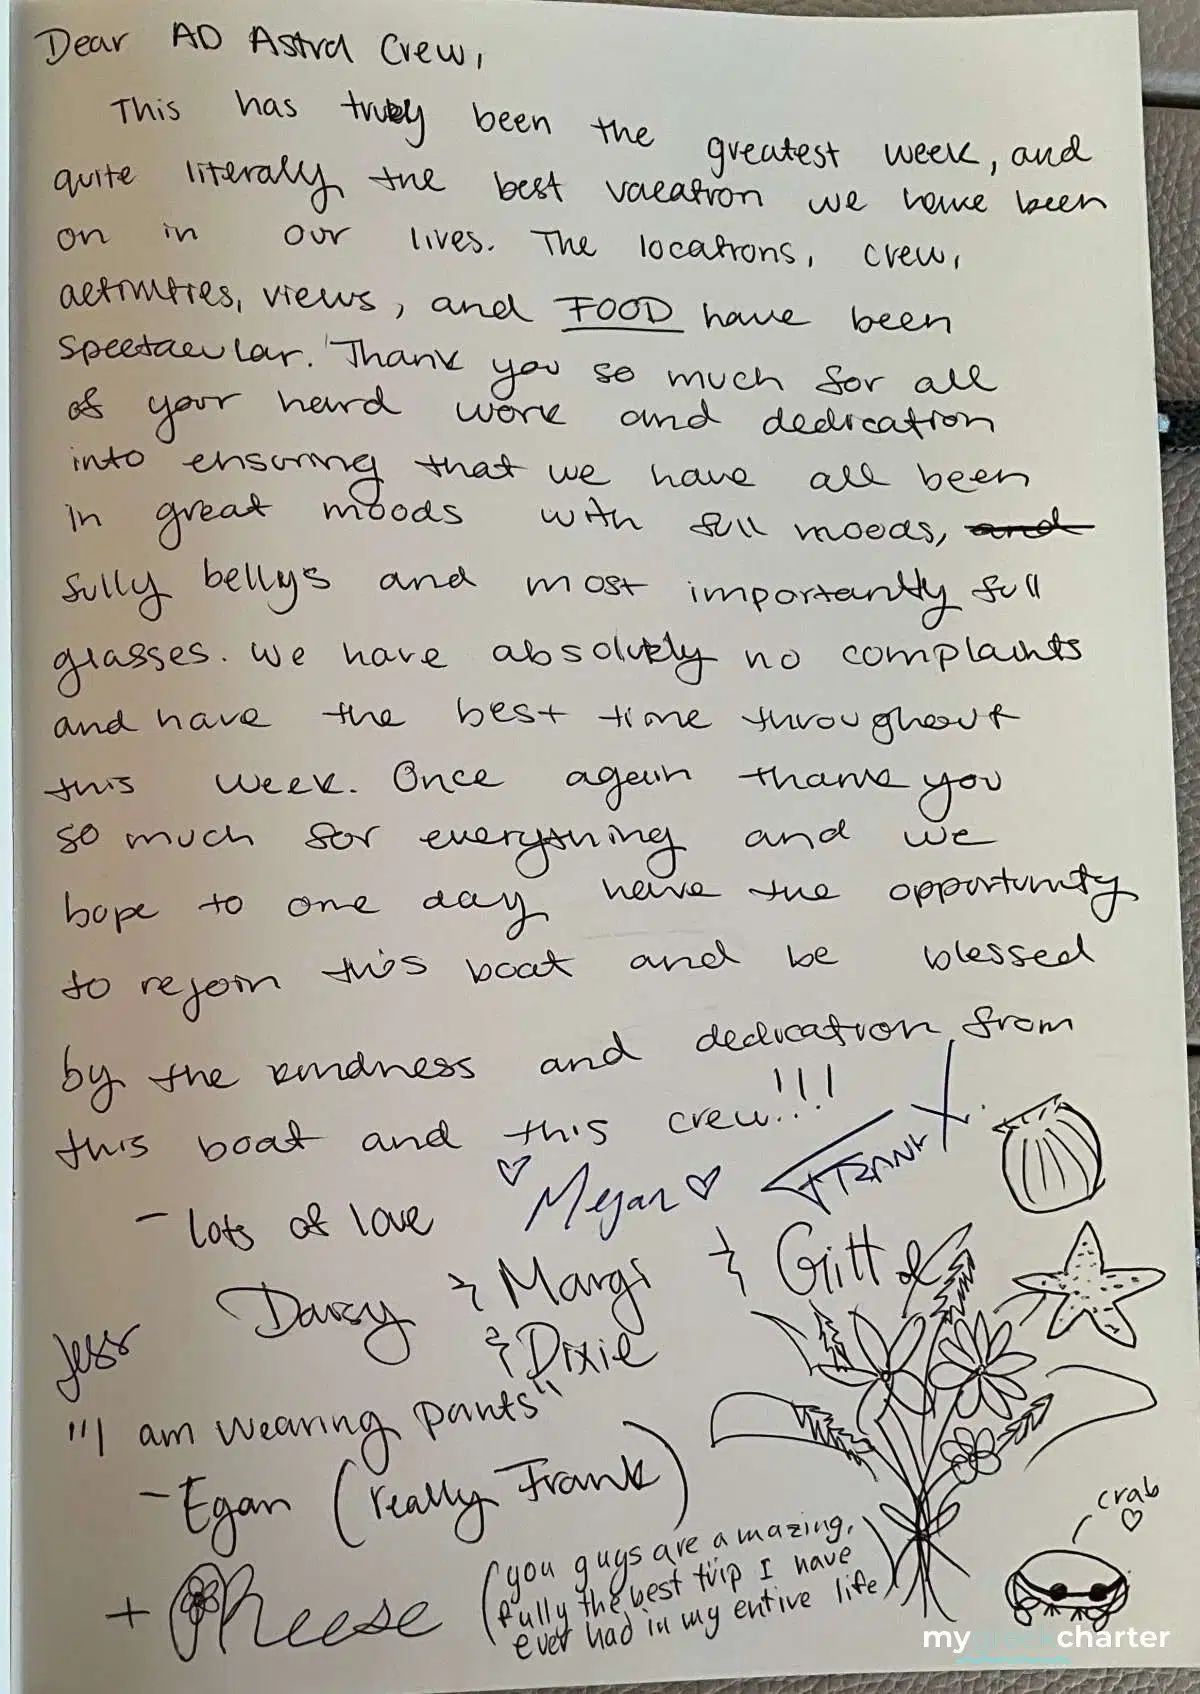 Dear AD Astra Crew,
This has truly been the greatest week, and
quite literally the best vacation we have been
on in our lives. The locations, crew,
activities, views, and FOOD have been
spectacular. Thank you so much for all
of your hard work and dedication
into ensuring that we have all been
in great moods with full moods, and
fully bellys and most importantly full
glasses. We have absolutely no complaints
and have the best time throughout
this week. Once again thank you
so much for everything and we
hope to one day have the opportunity
to rejoin this boat and be blessed
by the kindness and dedication from
this boat and this crew!!!
- lots of love
♡ Megan ♡ FRANK
Daisy & Margs &
Jess & Dixie
"I am wearing pants"
- Egan (really Frank)
+ Rheese (you guys are amazing,
fully the best trip I have
ever had in my entire life)
crab
♡
mygreekcharter